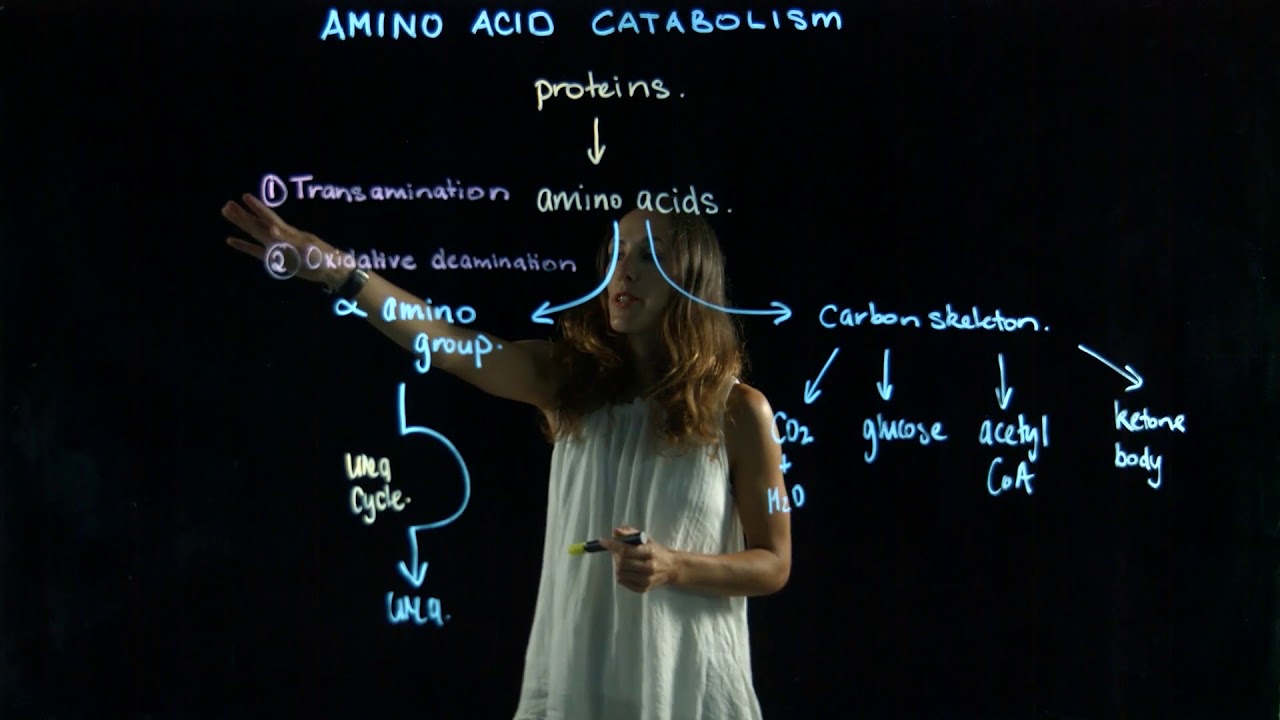 AMINO ACID CATABOLISM
proteins.
① Transamination
amino acids.
② Oxidative deamination
α amino
group.
carbon skeleton.
CO2
+
H2O
glucose
acetyl
CoA
ketone
body
urea
cycle.
urea.